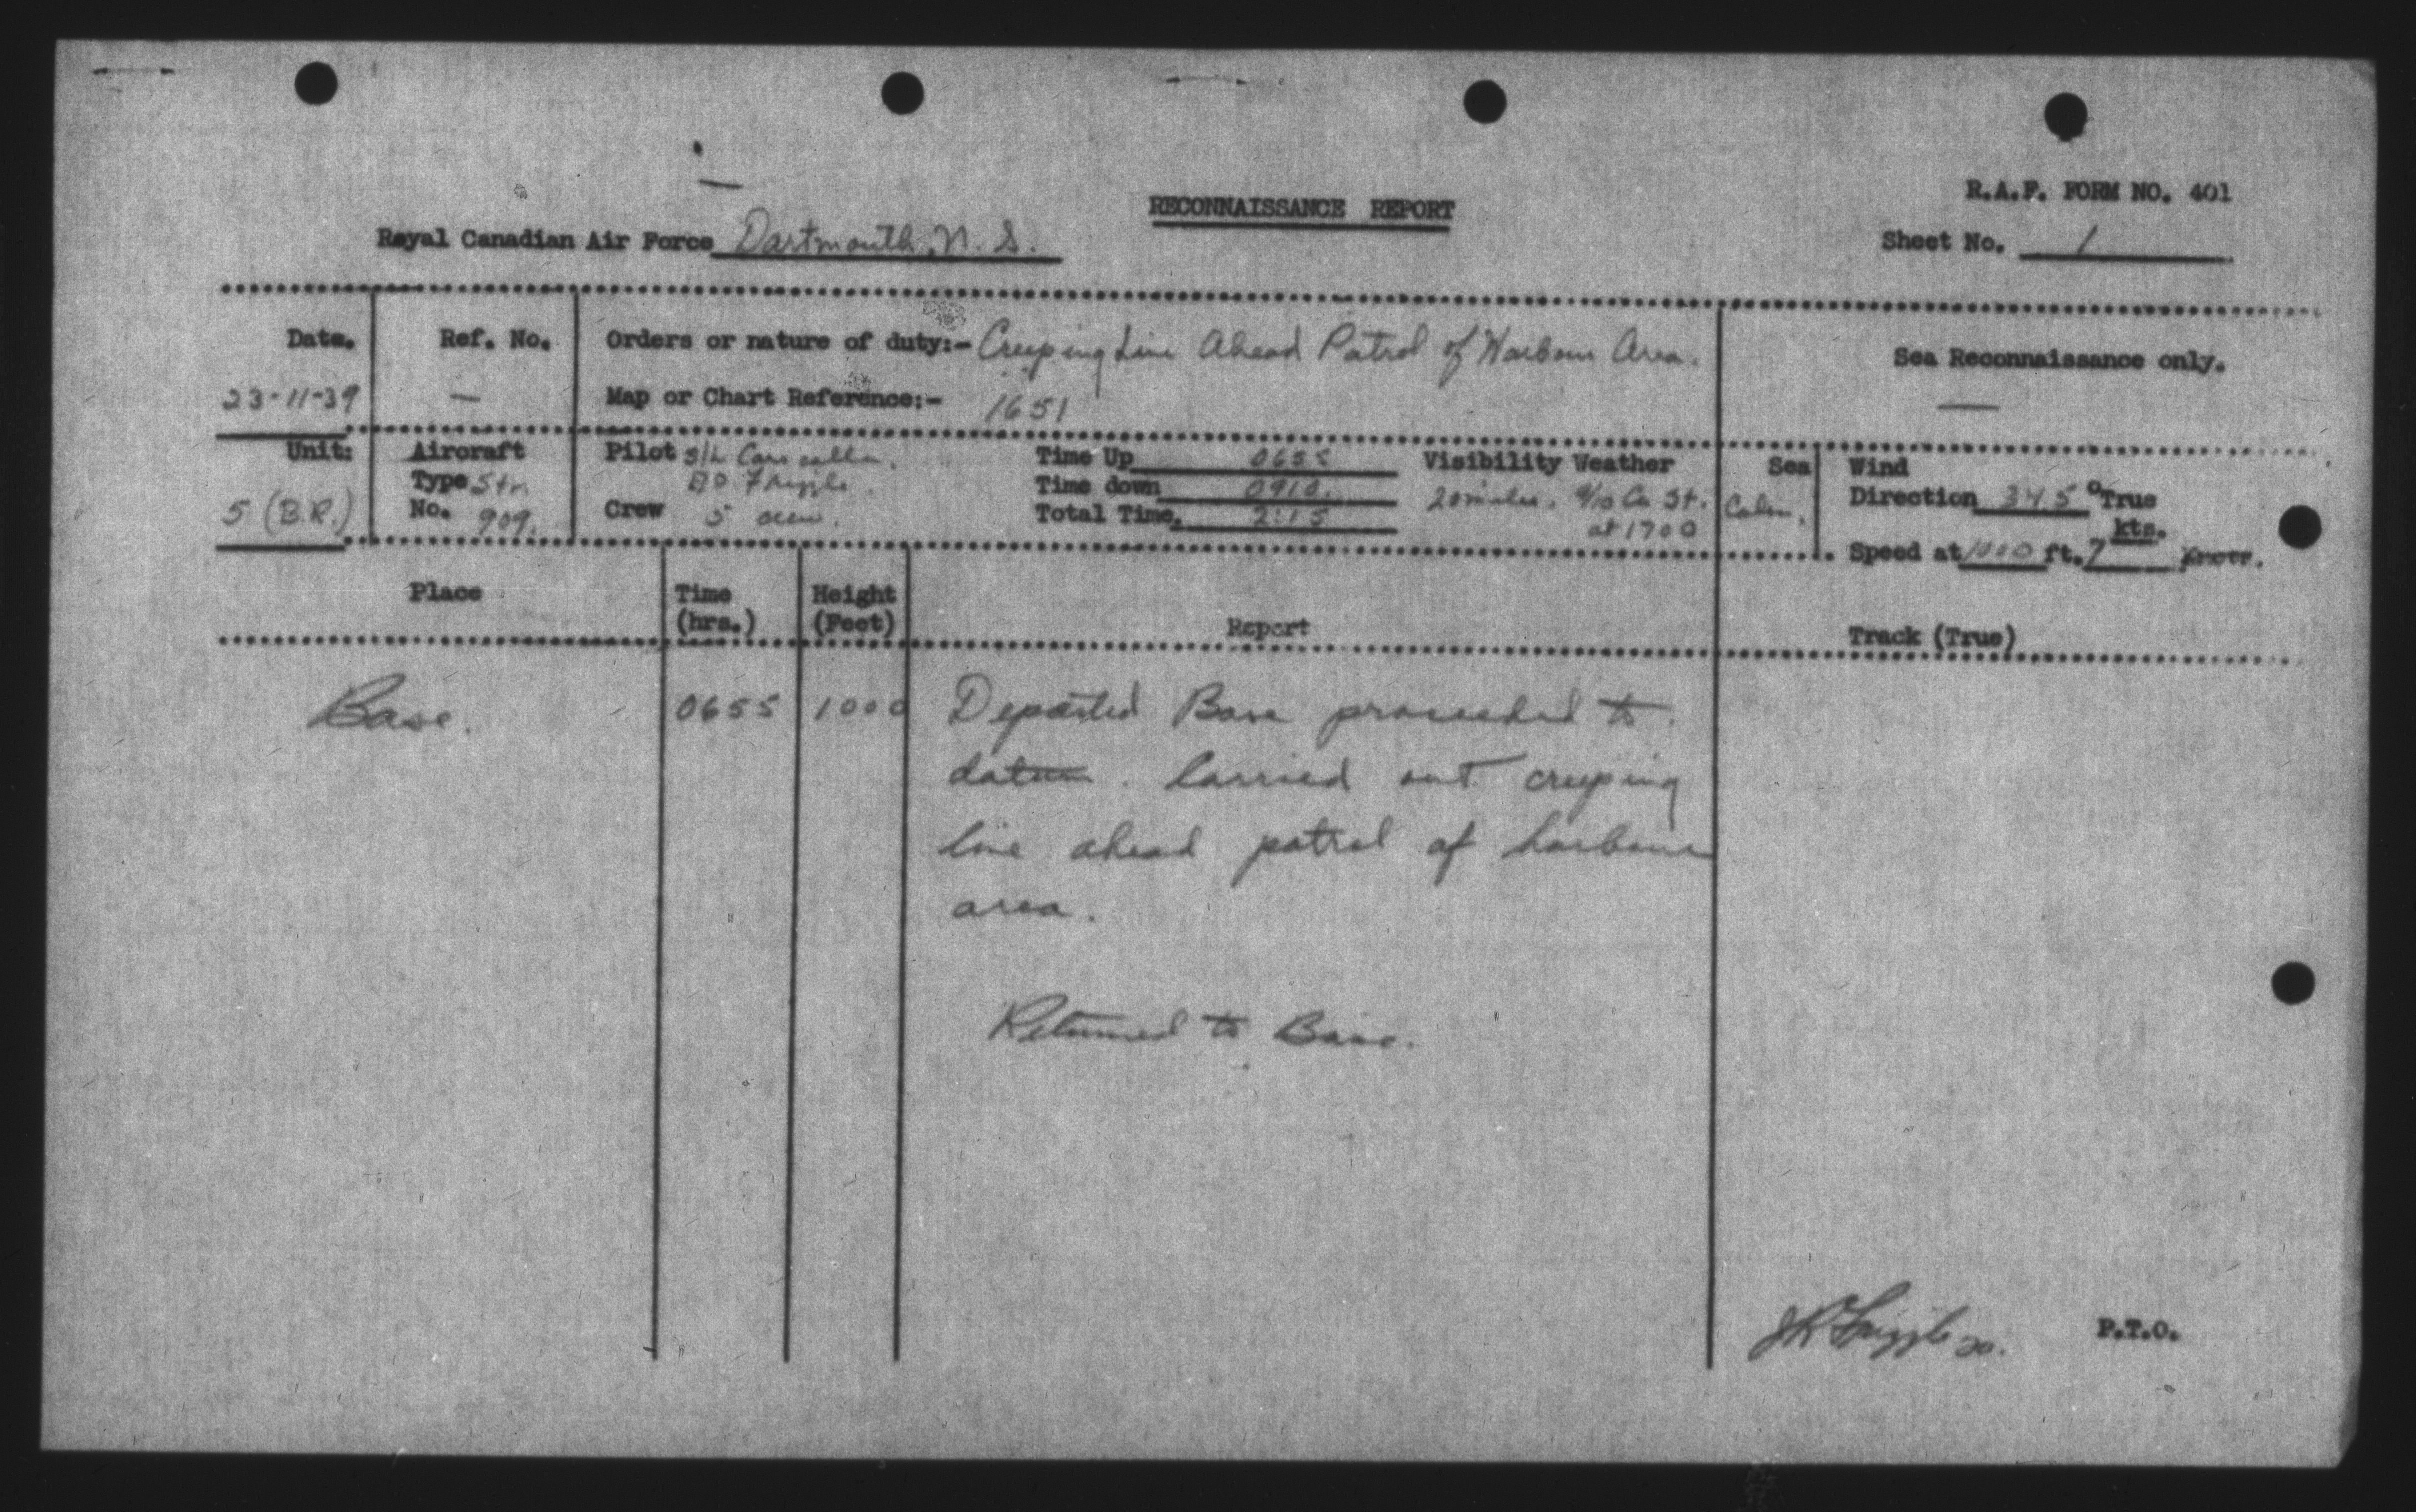 RECONNAISSANCE REPORT
R.A.F. FORM NO. 401
Royal Canadian Air Force Dartmouth, N. S.
Sheet No. 1
Date. 23-11-39
Ref. No. —
Orders or nature of duty:- Creeping Line Ahead Patrol of Harbour Area.
Map or Chart Reference:- 1651
Sea Reconnaissance only.
—
Unit: 5 (B.R.)
Aircraft
Type Str.
No. 909.
Pilot S/L
Crew 5
Time Up 0655
Time down 0910.
Total Time. 2:15
Visibility 20 miles.
Weather 9/10 Cu St.
at 1700
Sea Calm.
Wind
Direction 345 °True
Speed at 1000 ft. 7 kts.
Place
Time
(hrs.)
Height
(Feet)
Report
Track (True)
Base.
0655
1000
Departed Base proceeded to
datum. Carried out creeping
line ahead patrol of harbour
area.
Returned to Base.
P.T.O.